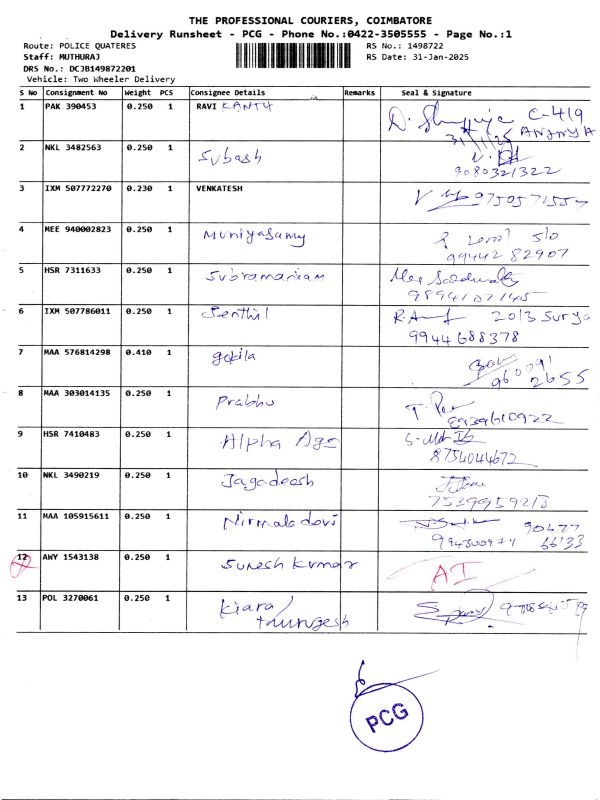 THE PROFESSIONAL COURIERS, COIMBATORE
Delivery Runsheet - PCG - Phone No.:0422-3505555 - Page No.:1
Route: POLICE QUATERES RS No.: 1498722
Staff: MUTHURAJ RS Date: 31-Jan-2025
DRS No.: DCJB149872201
Vehicle: Two Wheeler Delivery
S No Consignment No Weight PCS Consignee Details Remarks Seal & Signature
1 PAK 390453 0.250 1 RAVI KANTH C-419
31/1/25 ANANYA
2 NKL 3482563 0.250 1 Subash
9080321322
3 IXM 507772270 0.230 1 VENKATESH
4 MEE 940002823 0.250 1 Muniyasamy S/o
99442 82907
5 HSR 7311633 0.250 1 Subramaniam
9894107145
6 IXM 507786011 0.250 1 Senthil 2013 Surya
9944688378
7 MAA 576814298 0.410 1 gokila
960091
2655
8 MAA 303014135 0.250 1 Prabhu
8939610922
9 HSR 7410483 0.250 1 Alpha Ags
8754044672
10 NKL 3490219 0.250 1 Jagadeesh
7539959213
11 MAA 105915611 0.250 1 Nirmaladevi 90477
66133
12 AWY 1543138 0.250 1 Suresh kumar AI
13 POL 3270061 0.250 1 Kiara/
thungesh
PCG